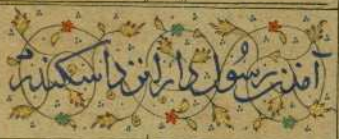 آمدن رسول دارا نزد اسکندر